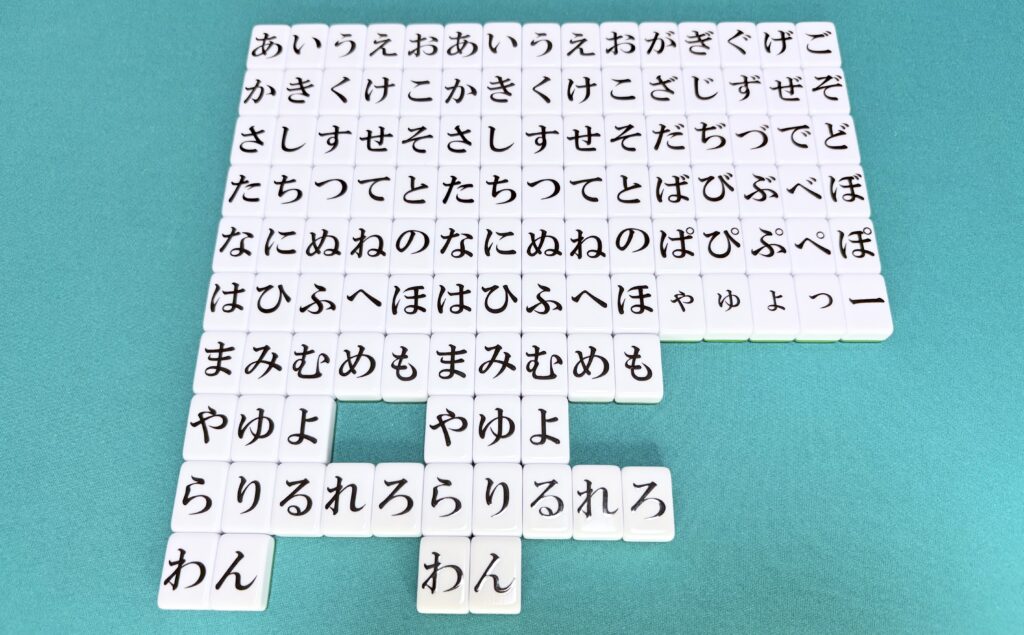 あいうえおあいうえおがぎぐげご
かきくけこかきくけこざじずぜぞ
さしすせそさしすせそだぢづでど
たちつてとたちつてとばびぶべぼ
なにぬねのなにぬねのぱぴぷぺぽ
はひふへほはひふへほゃゅょっー
まみむめもまみむめも
やゆよ やゆよ
らりるれろらりるれろ
わん わん